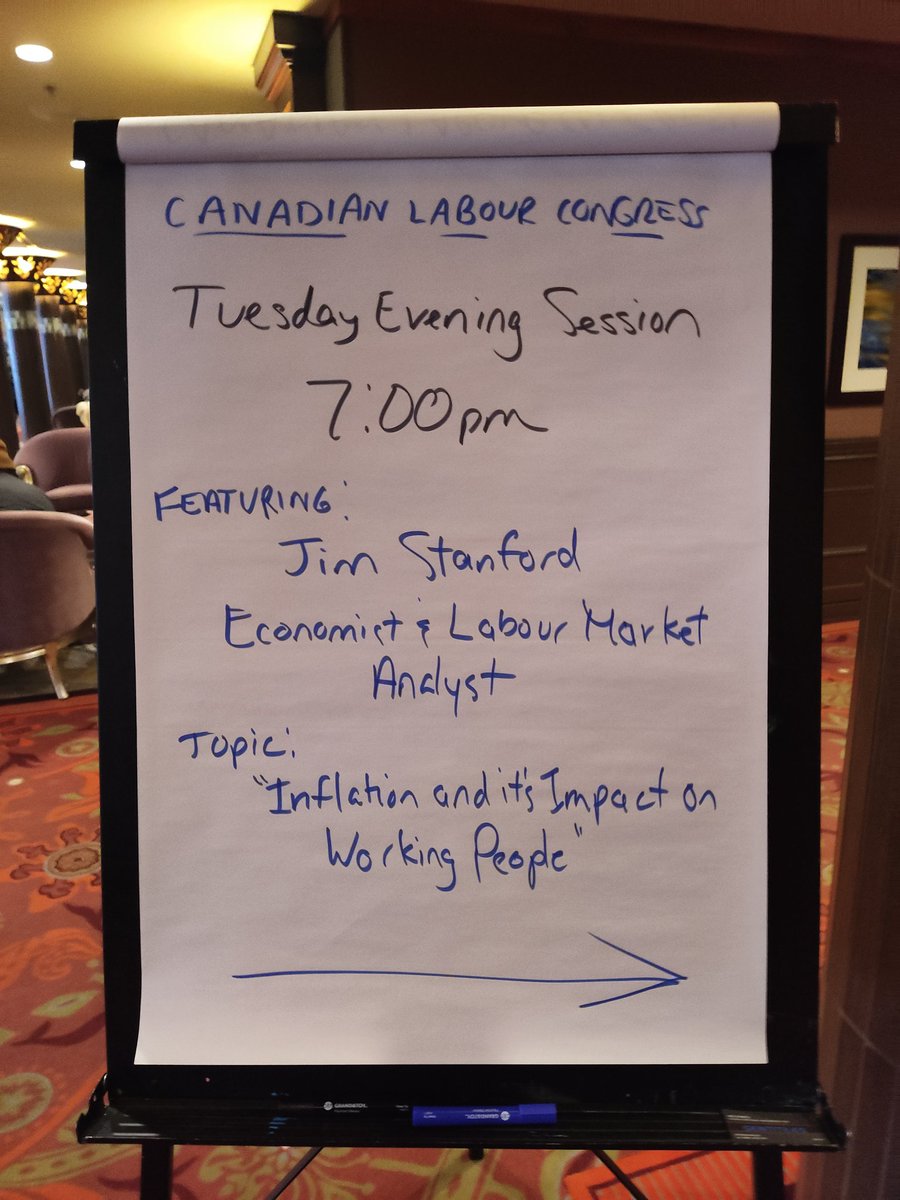 CANADIAN LABOUR CONGRESS
Tuesday Evening Session
7:00pm
FEATURING:
Jim Stanford
Economist & Labour Market
Analyst
Topic:
"Inflation and it's Impact on
Working People"
GRAND&TOY
GRAND&TOY